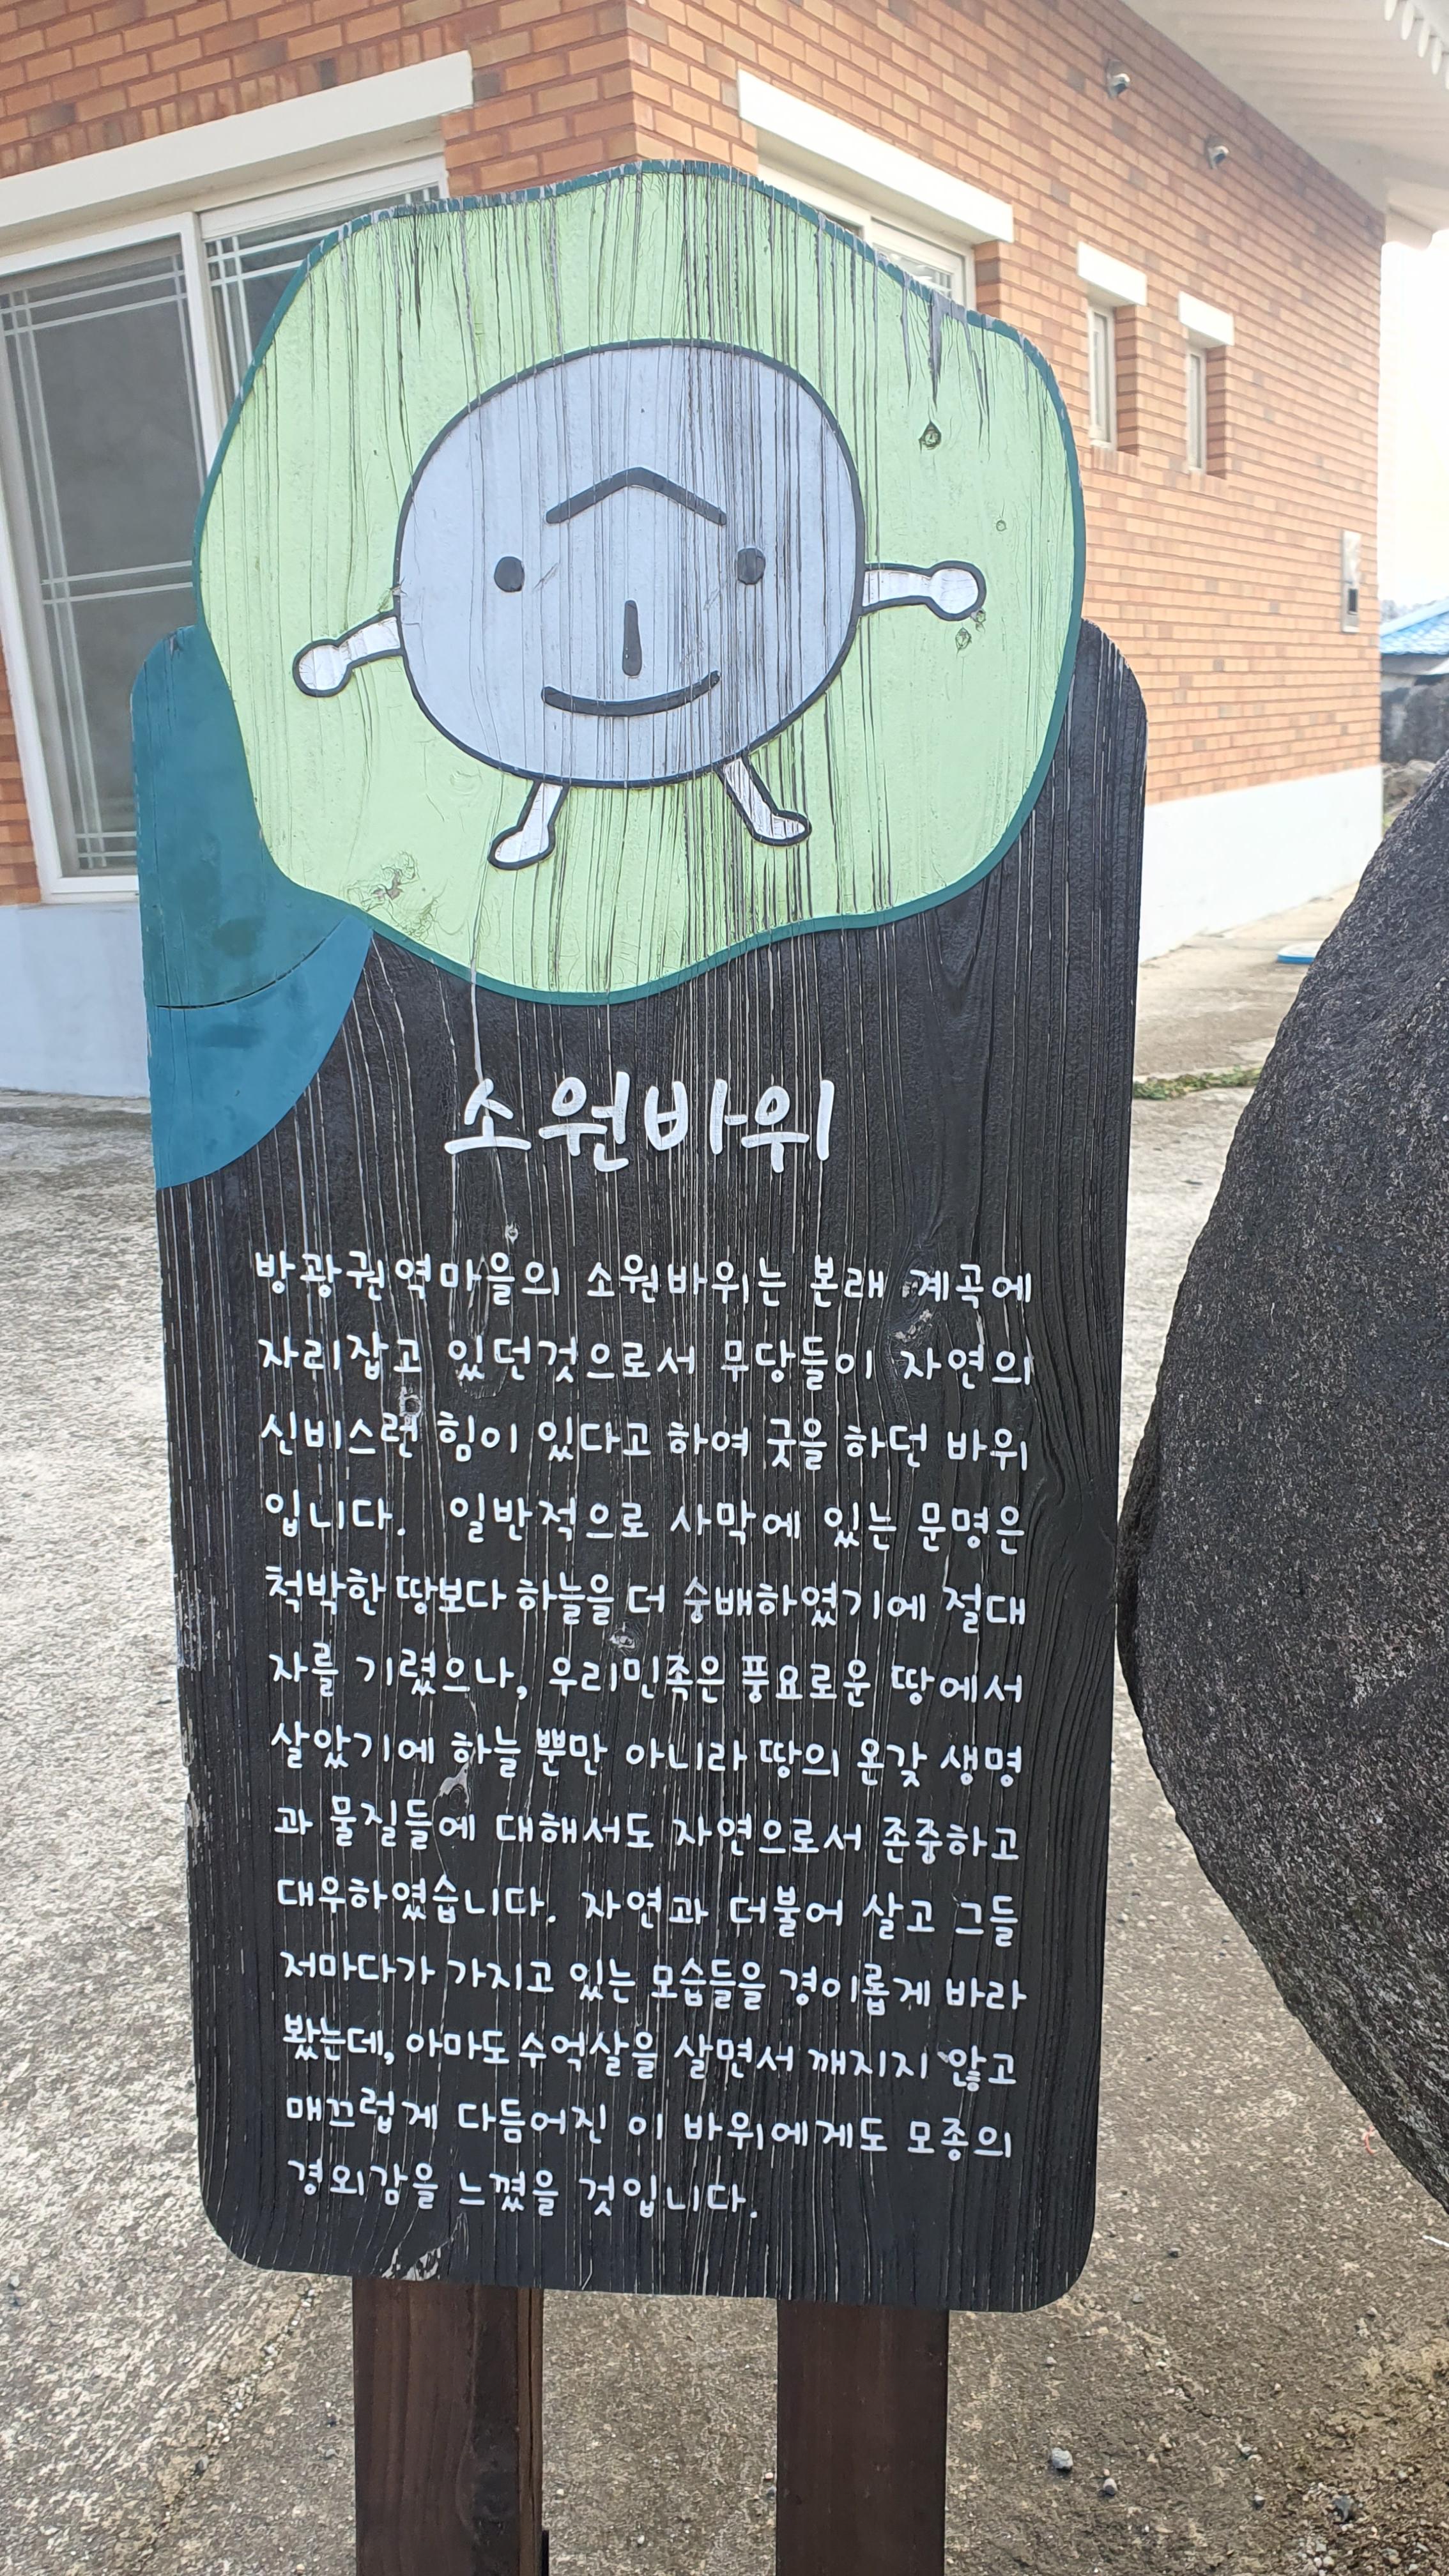 소원바위
방광권역마을의 소원바위는 본래 계곡에
자리잡고 있던것으로서 무당들이 자연의
신비스런 힘이 있다고 하여 굿을 하던 바위
입니다. 일반적으로 사막에 있는 문명은
척박한 땅보다 하늘을 더 숭배하였기에 절대
자를 기렸으나, 우리민족은 풍요로운 땅에서
살았기에 하늘 뿐만 아니라 땅의 온갖 생명
과 물질들에 대해서도 자연으로서 존중하고
대우하였습니다. 자연과 더불어 살고 그들
저마다가 가지고 있는 모습들을 경이롭게 바라
봤는데, 아마도 수억살을 살면서 깨지지 않고
매끄럽게 다듬어진 이 바위에게도 모종의
경외감을 느꼈을 것입니다.